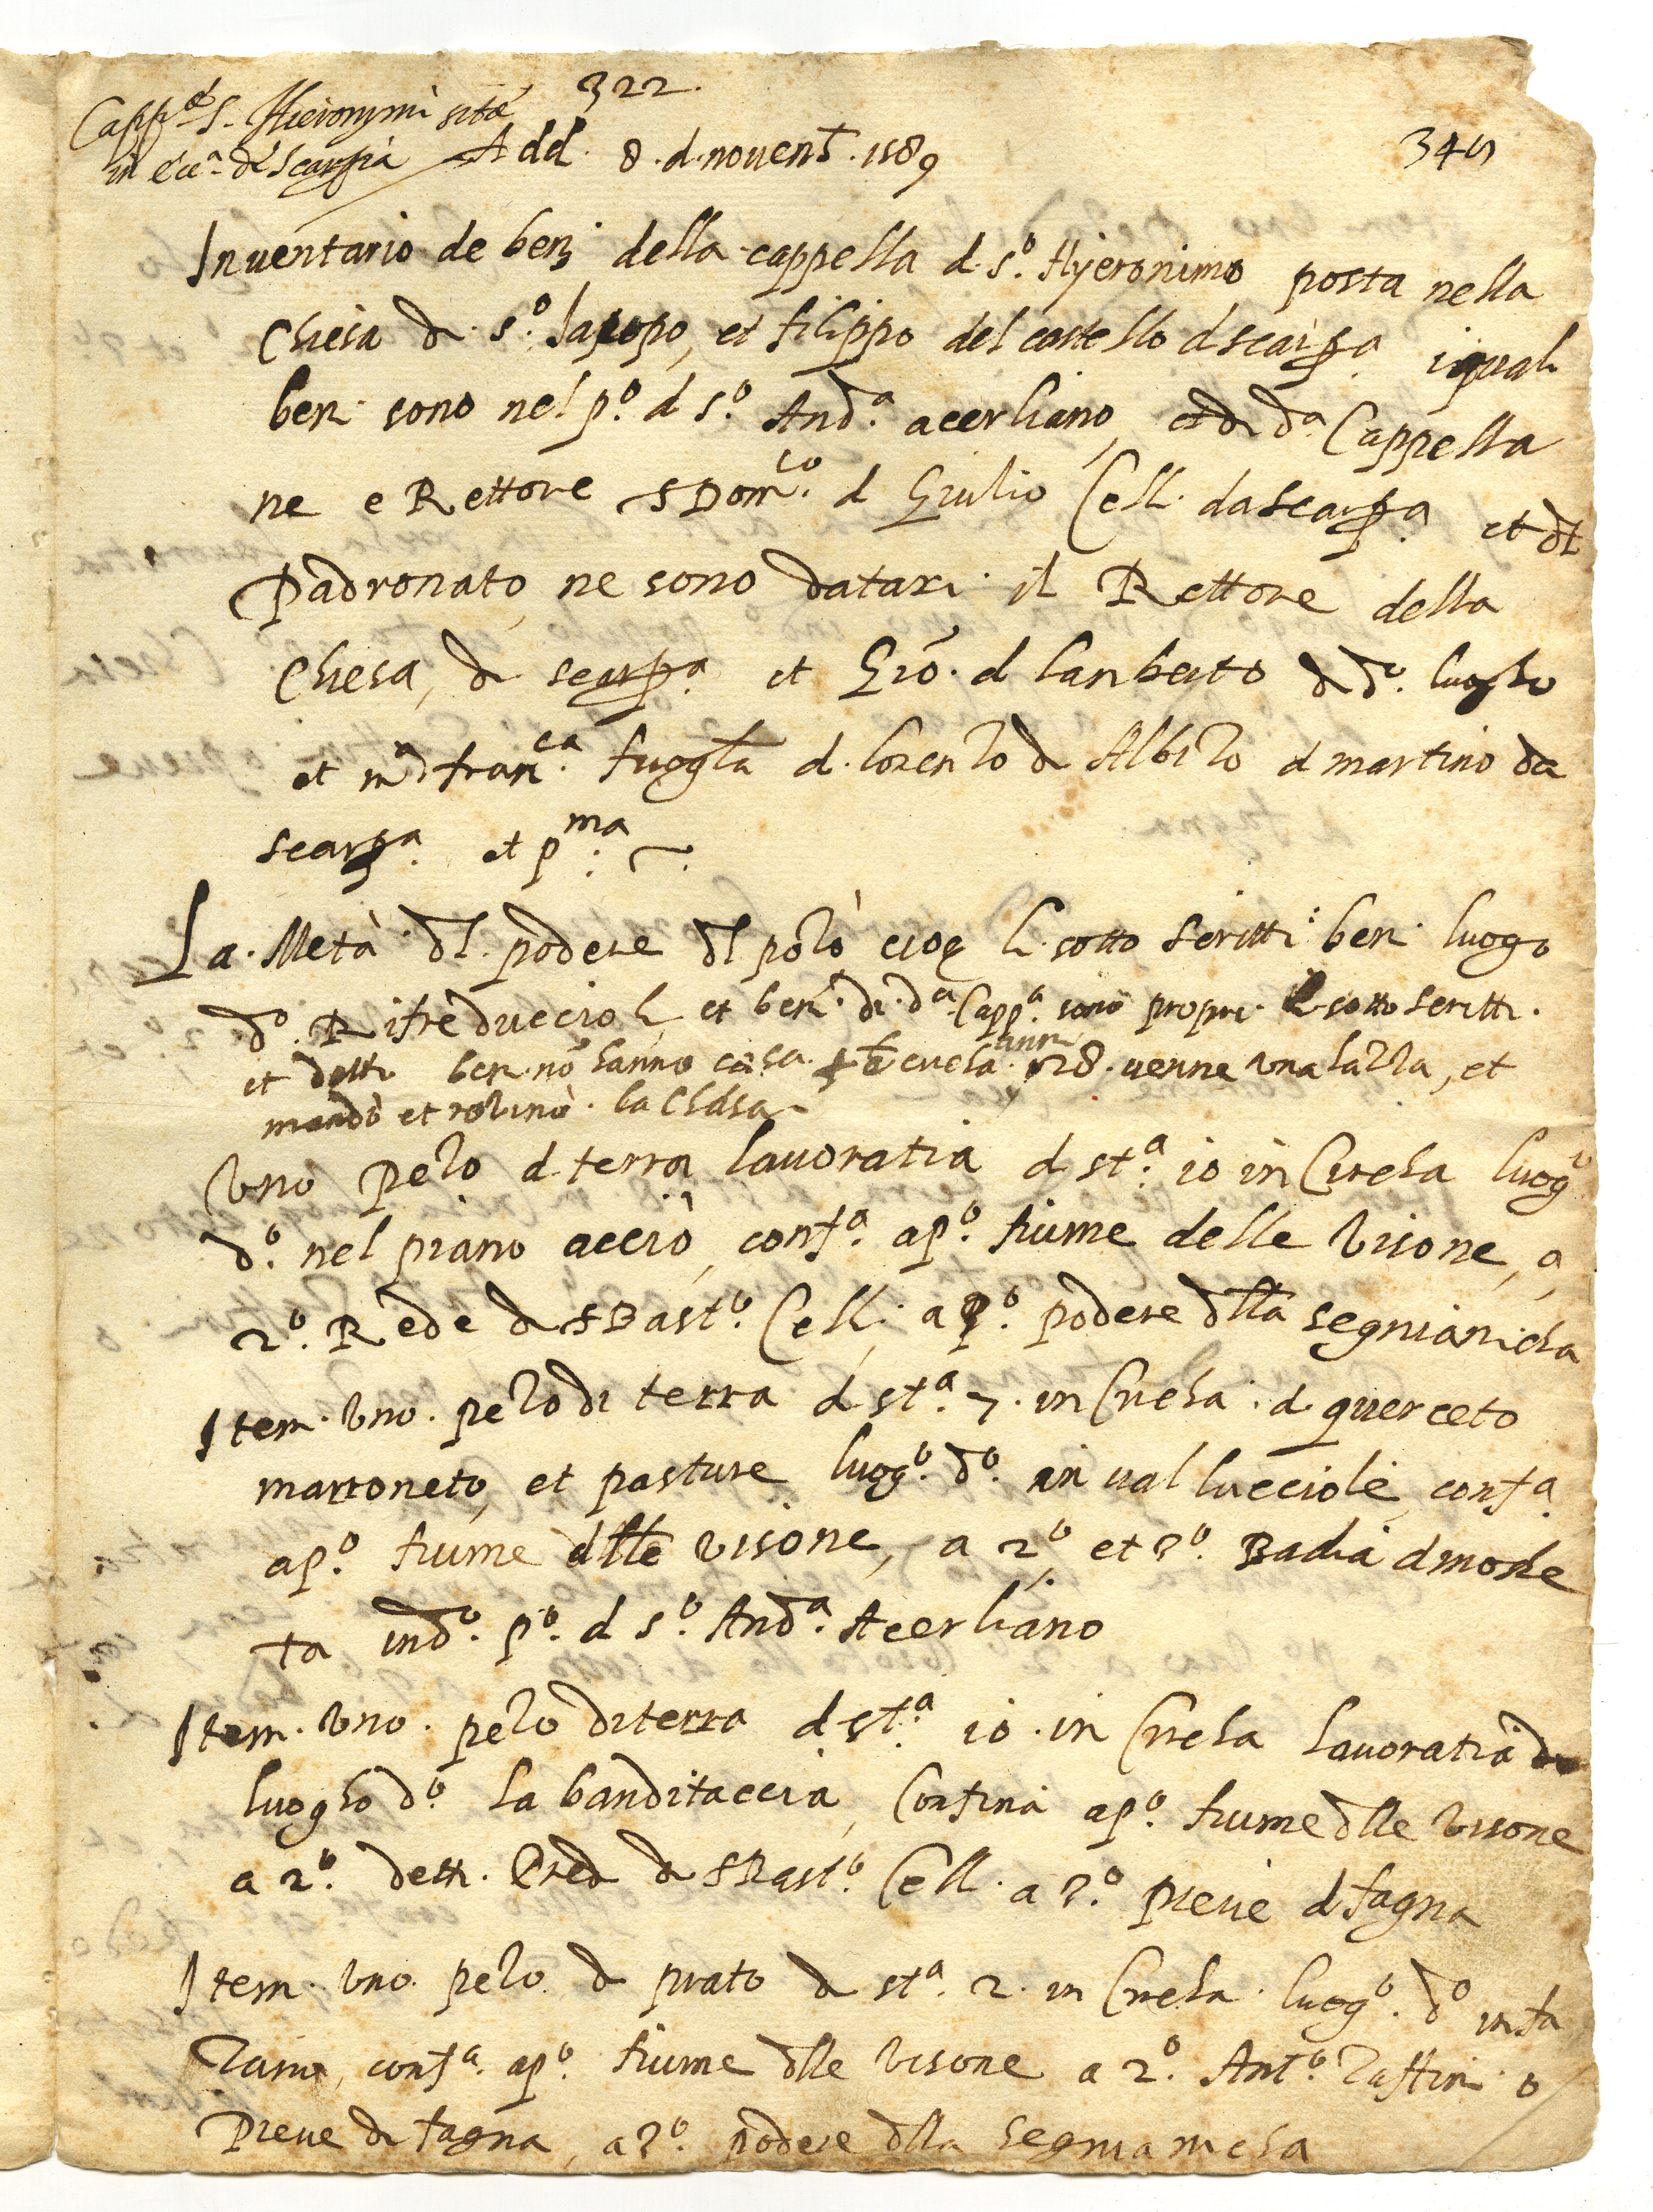 322.
Capp.ª S. Hieronymi sitæ
in ecc.ª de Scarpia
Add. 8. d. nouenb. 1589
345
Inuentario de beni della cappella d. s.º Hyeronimo posta nella
chiesa di s.º Iacopo, et filippo del castello d scarp.ª iquali
beni sono nel p.º d s.º And.ª acerliano, et di d.ª Cappella
ne e Rettore s Dom.co d Giulio Celli da scarp.ª et dl
Padronato, ne sono datari il Rettore della
chiesa, di scarp.ª et Giō. d lanberto di d.º luogho
et m.ª fran.ca d. lorenzo di Albizo d martino da
scarp.ª et p.ma
La Metà dl podere dl pozo cioe li sotto scritti beni luogo
d.º Rifreduccioli et beni di d.ª Capp.ª sono propri li sotto scritti.
et detti beni nō hanno casa 28. uenne una and et
mandò et rouinò la chasa
Uno pezo d terra lauoratia d st.ª io in circha luog.º
d.º nel piano accio, conf.ª a p.º fiume delle uisone, a
2.º Rede di s Bast.º Celli, a 3.º podere dlla segnianicha
Item uno pezo di terra d st.ª 7. in circha d querceto
marroneto, et pasture luog.º d.º in ual lucciole conf.ª
a p.º fiume dlle uisone, a 2.º et 3.º Badia d moshe
ta in d.º p.º d s.º And.ª Acerliano
Item uno pezo di terra d st.ª io in circha lauoratia
luogho d.º la banditaccia, Confina a p.º fiume dlle uisone
a 2.º detti Eredi di s Bast.º Celli a 3.º pieue d fagna
Item uno pezo di prato di st.ª 2. in circha luog.º d.º infa
conf.ª a p.º fiume dlle uisone a 2.º Ant.º Zaffini o
Pieue di fagna, a 3.º podere dlla segnianicha